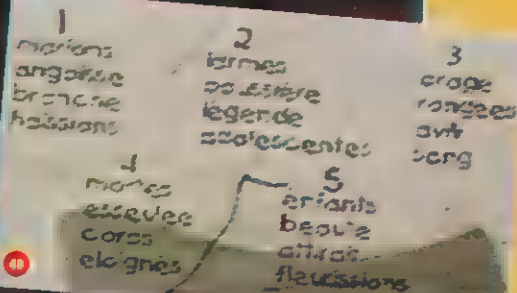 1
marions
angoisse
branche
haïssions
2
larmes
poussière
légende
adolescentes
3
orage
rangées
avril
sang
4
mortes
corps
éloignés
5
enfants
beauté
fleurissions